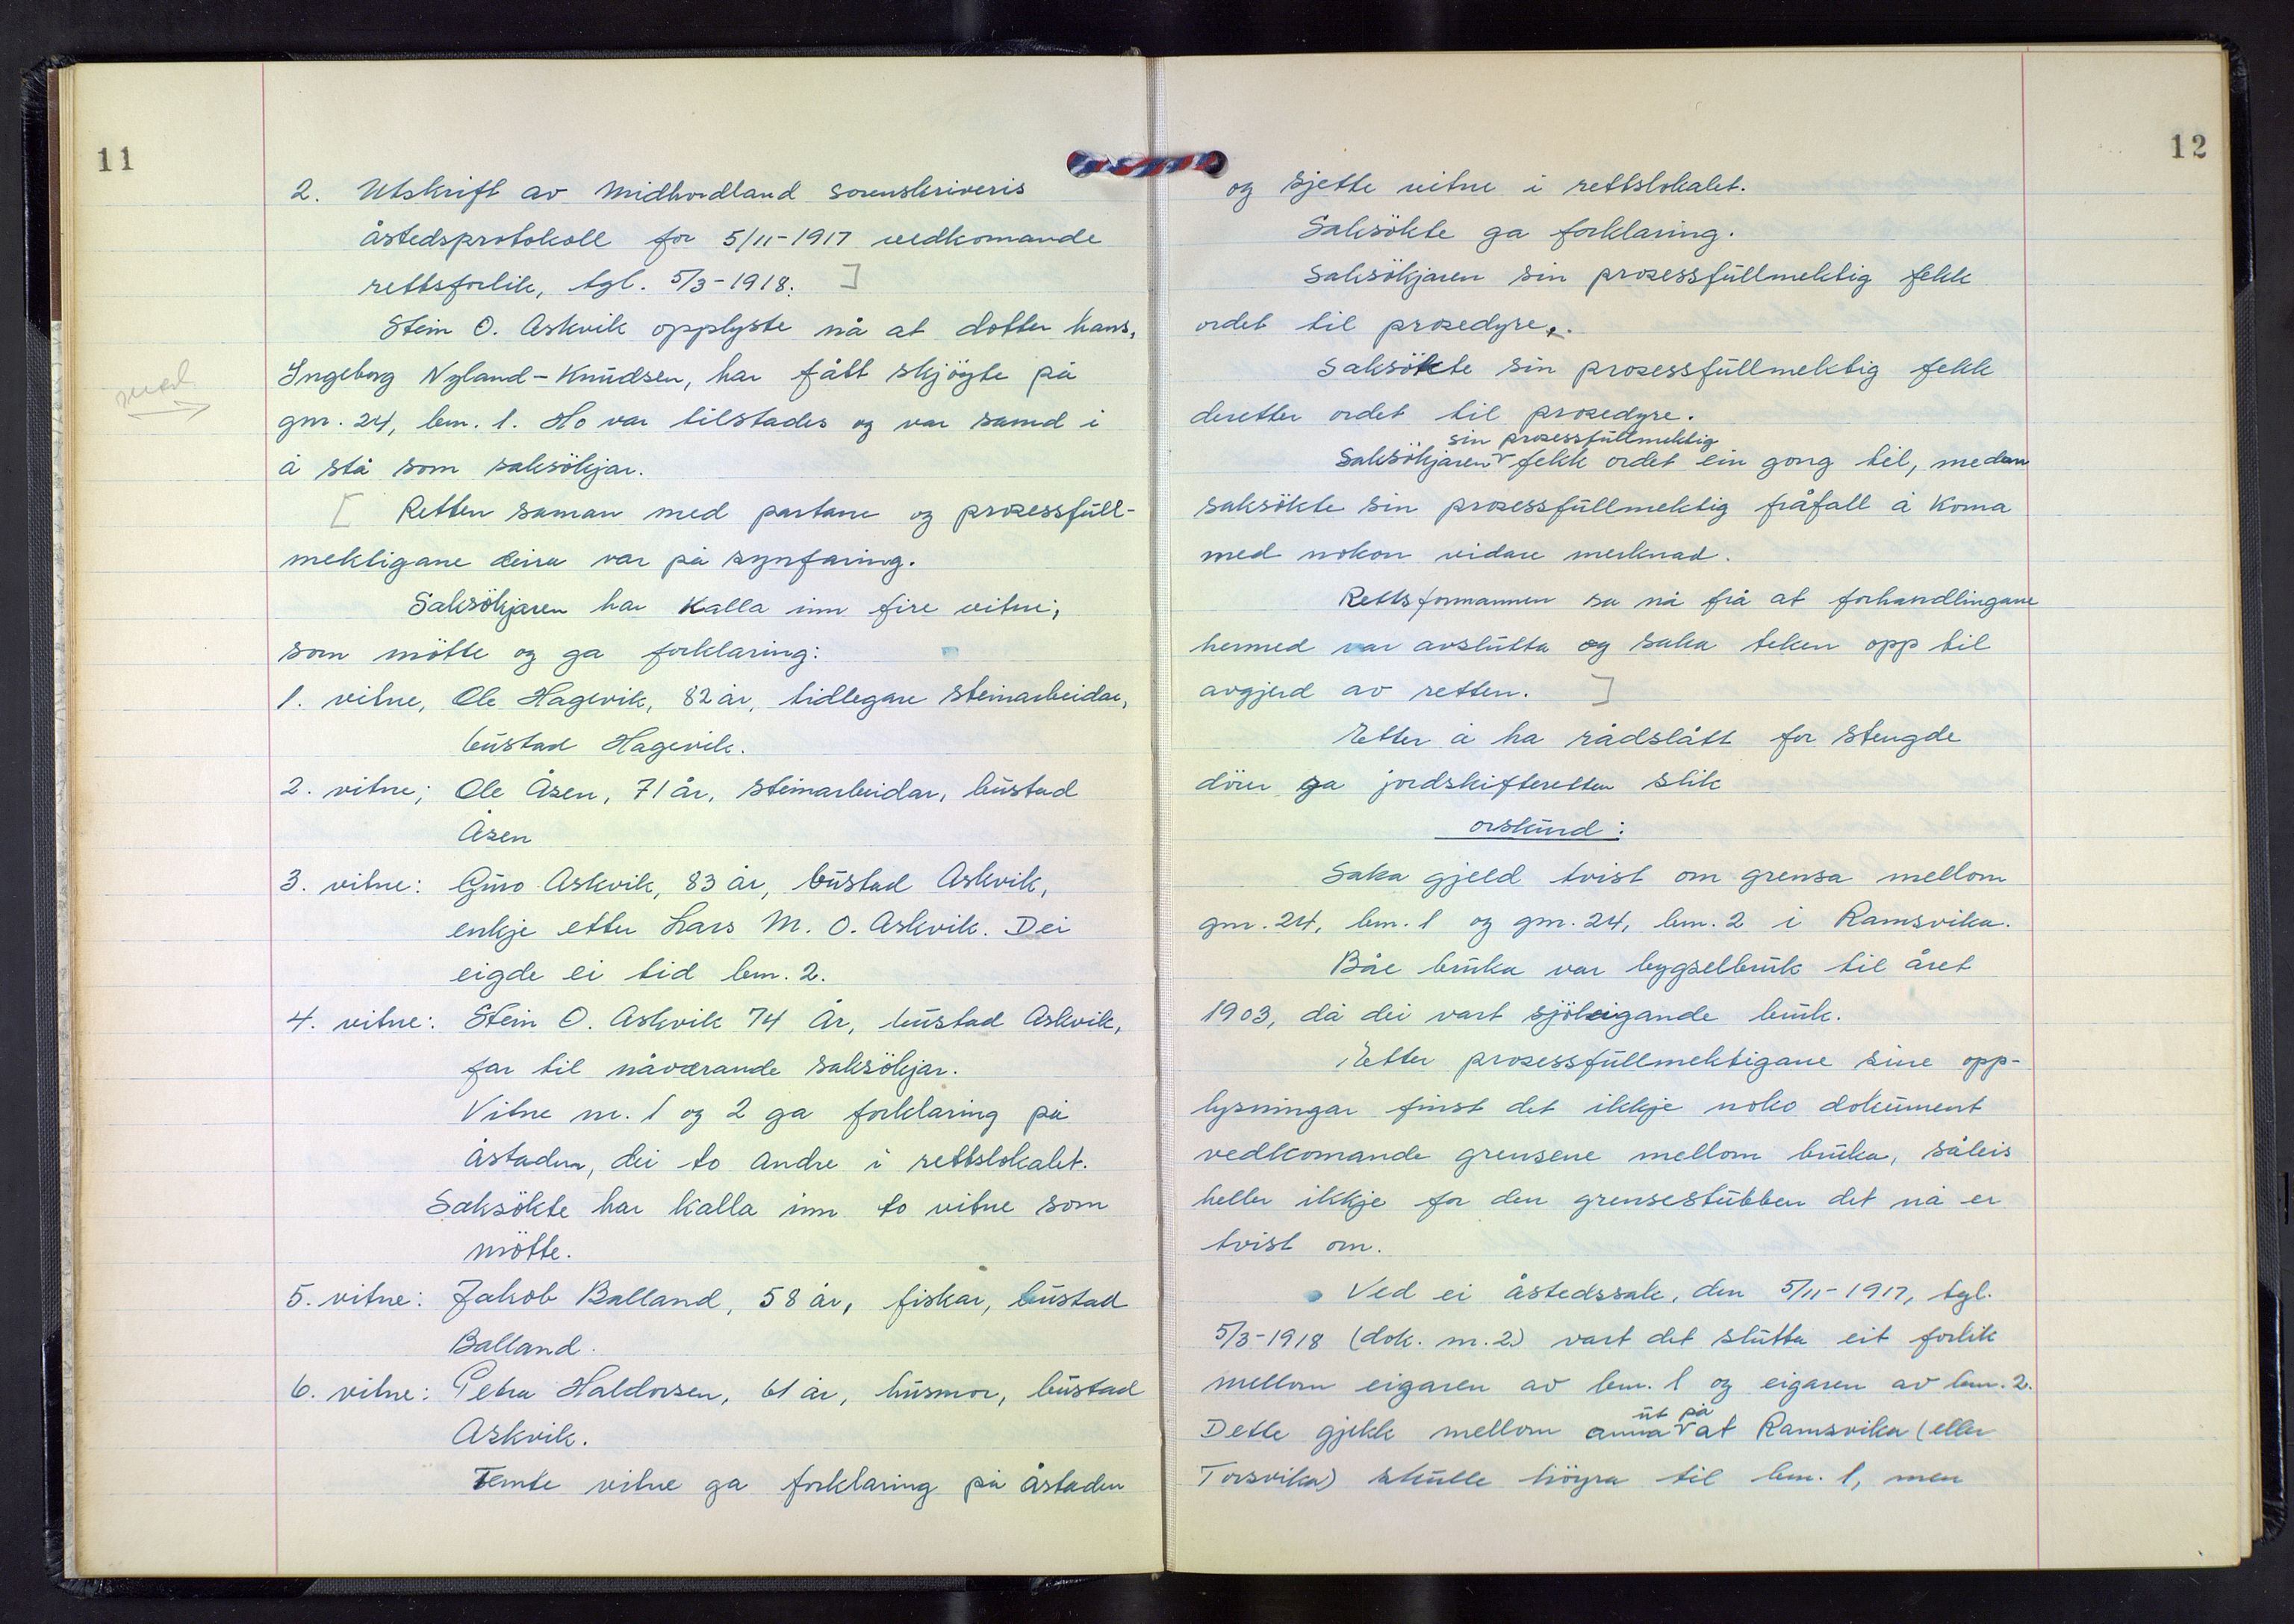 11
2. Utskrift av Midhordland sorenskriveris
åstedsprotokoll for 5/11-1917 vedkomande
rettsforlik, tgl. 5/3-1918. ]
Stein O. Askvik opplyste nå at dotter hans,
Ingeborg Nyland-Knudsen, har fått skjøyte på
gnr. 24, bnr. 1. Ho var tilstades og var samd i
å stå som saksökjar.
[ Retten saman med partane og prosessfull-
mektigane deira var på synfaring.
Saksökjaren har kalla inn fire vitne,
som mötte og ga forklaring:
1. vitne, Ole Hagevik, 82 år, tidlegare steinarbeidar,
bustad Hagevik.
2. vitne; Ole Åsen, 71 år, steinarbeidar, bustad
Åsen
3. vitne: Guro Askvik, 83 år, bustad Askvik,
enkje etter Lars M. O. Askvik. Dei
eigde ei tid bnr. 2.
4. vitne: Stein O. Askvik 74 År, bustad Askvik,
far til nåværande saksökjar.
Vitne nr. 1 og 2 ga forklaring på
åstaden, dei to andre i rettslokalet.
Saksökte har kalla inn to vitne som
mötte.
5. vitne: Jakob Balland, 58 år, fiskar, bustad
Balland.
6. vitne: Petra Haldorsen, 61 år, husmor, bustad
Askvik.
Femte vitne ga forklaring på åstaden
12
og sjette vitne i rettslokalet.
Saksökte ga forklaring.
Saksökjaren sin prosessfullmektig fekk
ordet til prosedyre.
Saksökte sin prosessfullmektig fekk
deretter ordet til prosedyre.
sin prosessfullmektig
Saksökjaren fekk ordet ein gong til, medan
saksökte sin prosessfullmektig fråfall å koma
med nokon vidare merknad.
Rettsformannen sa nå frå at forhandlingane
hermed var avslutta og saka teken opp til
avgjerd av retten. ]
Etter å ha rådslått for stengde
dörer ga jordskifteretten slik
orskurd:
Saka gjeld tvist om grensa mellom
gnr. 24, bnr. 1 og gnr. 24, bnr. 2 i Ramsvika.
Båe bruka var bygselbruk til året
1903, då dei vart sjöleigande bruk.
Etter prosessfullmektigane sine opp-
lysningar finst det ikkje noko dokument
vedkomande grensene mellom bruka, såleis
heller ikkje for den grensestubben det nå er
tvist om.
Ved ei åstedssak, den 5/11-1917, tgl.
5/3-1918 (dok. nr. 2) vart det slutta eit forlik
mellom eigaren av bnr. 1 og eigaren av bnr. 2.
ut på
Dette gjekk mellom anna at Ramsvika (eller
Torsvika) skulle höyra til bnr. 1, men